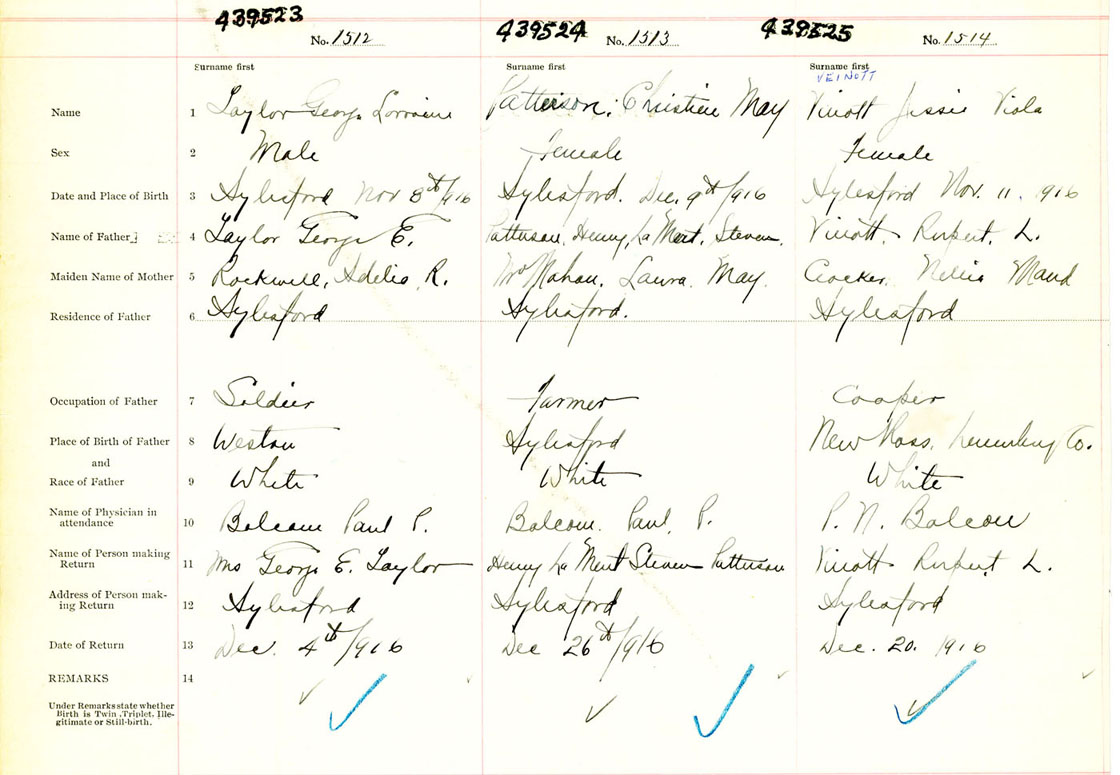 439523 No. 1512 439524 No. 1513 439525 No. 1514
Surname first Surname first Surname first
VEINOTT
Name 1 Taylor George Lorraine Patterson, Christine May Vinott Jessie Viola
Sex 2 Male Female Female
Date and Place of Birth 3 Aylesford Nov 8th/916 Aylesford. Dec. 9th/916 Aylesford Nov. 11. 1916
Name of Father 4 Taylor George E. Patterson, Henry, La Mert, Steven. Vinott, Rupert, L.
Maiden Name of Mother 5 Rockwell, Adelia R. McMahan, Laura, May. Crocker, Nellie Maud
Residence of Father 6 Aylesford Aylesford. Aylesford
Occupation of Father 7 Soldier Farmer Cooper
Place of Birth of Father 8 Weston Aylesford New Ross, Lunenburg Co.
and
Race of Father 9 White White White
Name of Physician in
attendance 10 Balcom Paul P. Balcom, Paul, P. P. N. Balcom
Name of Person making
Return 11 Mrs George E. Taylor Henry La Mert Steven Patterson Vinott Rupert L.
Address of Person mak-
ing Return 12 Aylesford Aylesford Aylesford
Date of Return 13 Dec. 4th/916 Dec 26th/916 Dec. 20. 1916
REMARKS 14
Under Remarks state whether
Birth is Twin, Triplet, Ille-
gitimate or Still-birth.